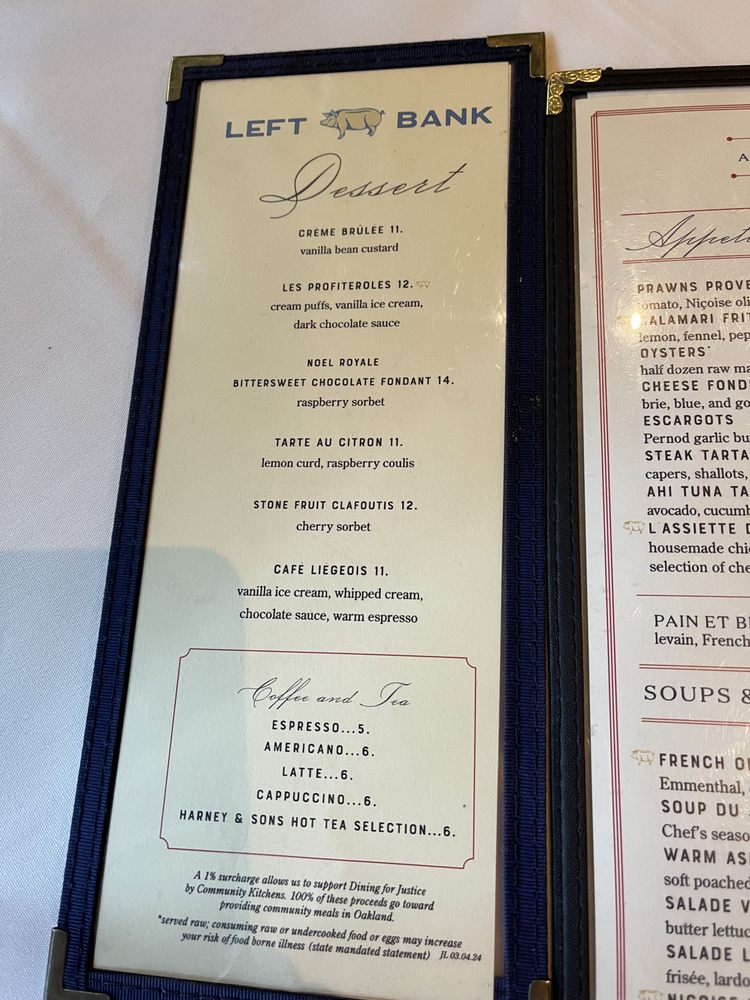 LEFT BANK
Dessert
CRÈME BRÛLÉE 11.
vanilla bean custard
LES PROFITEROLES 12.
cream puffs, vanilla ice cream,
dark chocolate sauce
NOEL ROYALE
BITTERSWEET CHOCOLATE FONDANT 14.
raspberry sorbet
TARTE AU CITRON 11.
lemon curd, raspberry coulis
STONE FRUIT CLAFOUTIS 12.
cherry sorbet
CAFÉ LIÉGEOIS 11.
vanilla ice cream, whipped cream,
chocolate sauce, warm espresso
Coffee and Tea
ESPRESSO...5.
AMERICANO...6.
LATTE...6.
CAPPUCCINO...6.
HARNEY & SONS HOT TEA SELECTION...6.
A 1% surcharge allows us to support Dining for Justice
by Community Kitchens. 100% of these proceeds go toward
providing community meals in Oakland.
*served raw; consuming raw or undercooked food or eggs may increase
your risk of food borne illness (state mandated statement) JL 03.04.24
PRAWNS
tomato, Niçoise
CALAMARI
lemon, fennel,
OYSTERS*
half dozen raw
CHEESE
brie, blue, and
ESCARGOTS
Pernod garlic
STEAK
capers, shallots,
AHI TUNA
avocado,
L'ASSIETTE
housemade
selection of
PAIN ET
levain, French
SOUPS &
FRENCH
Emmenthal,
SOUP DU
Chef's
WARM
soft poached
SALADE
butter
SALADE
frisée,